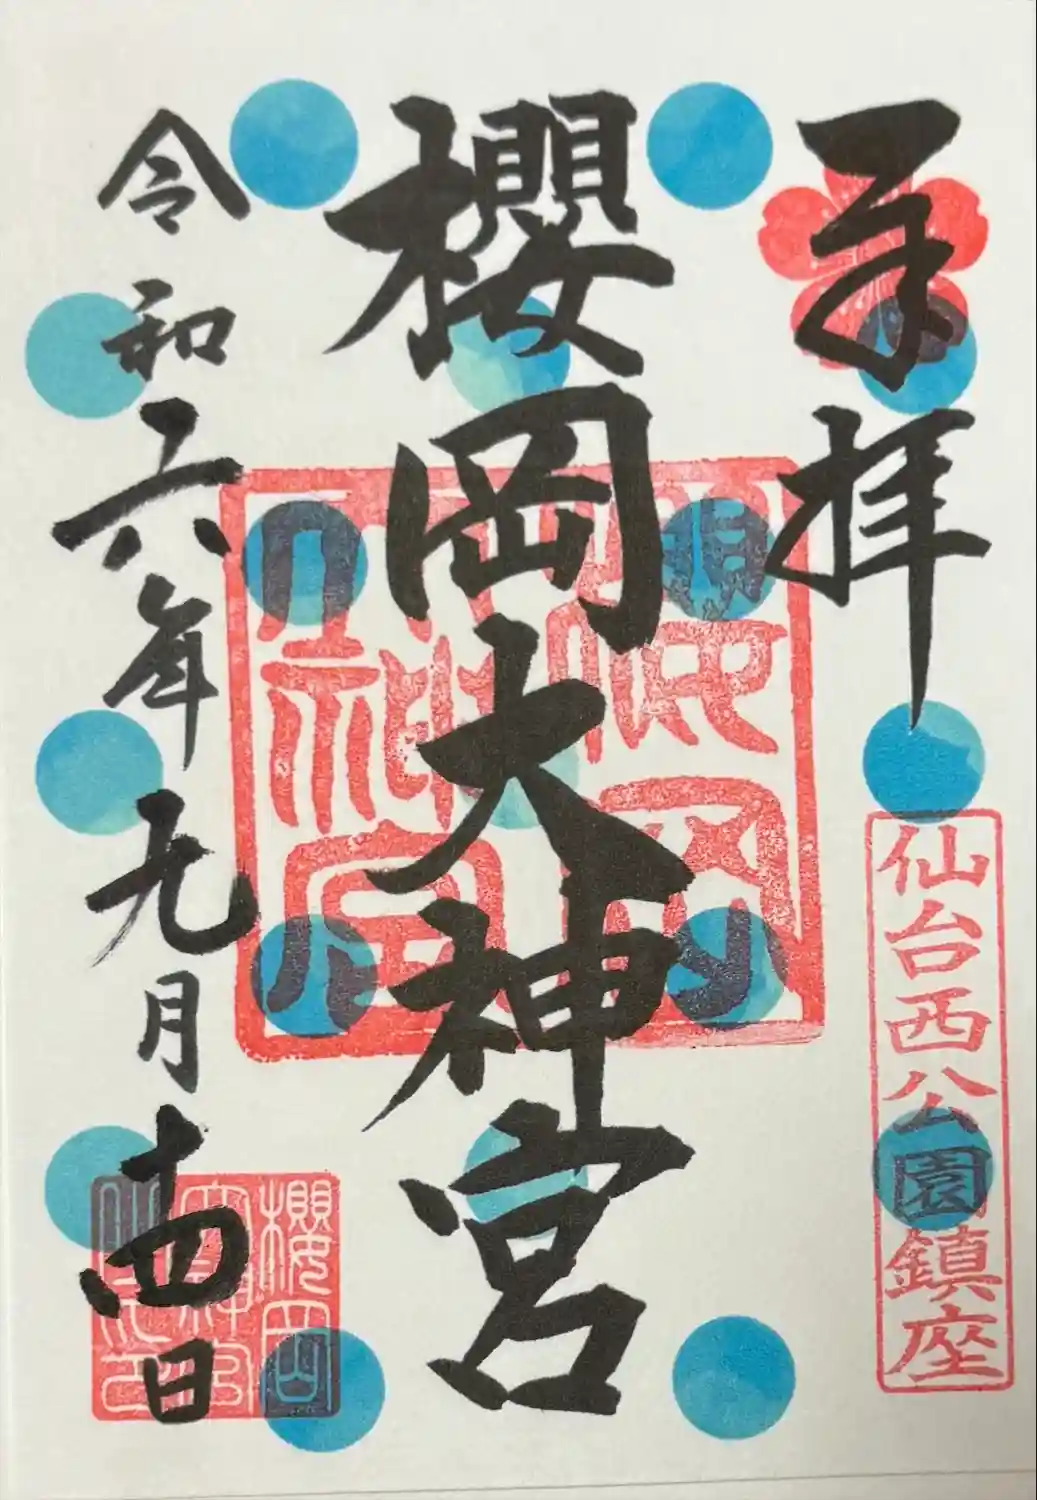 奉拝
仙台西公園鎮座
櫻岡大神宮
櫻岡
大神宮
令和六年元月十四日
櫻岡